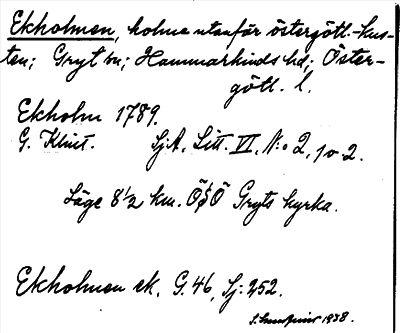 Ekholmen, holme utanför östergötl.-kus-
ten; Gryt sn; Hammarkinds hd; Öster-
götl. l.
Ekholm 1789.
G. Klint. Sj.A. Litt. VI. N:o 2, 1 o 2.
Läge 8 1/2 km. ÖSÖ Gryts kyrka.
Ekholmen ek. G. 46, Sj: 252.
1938.